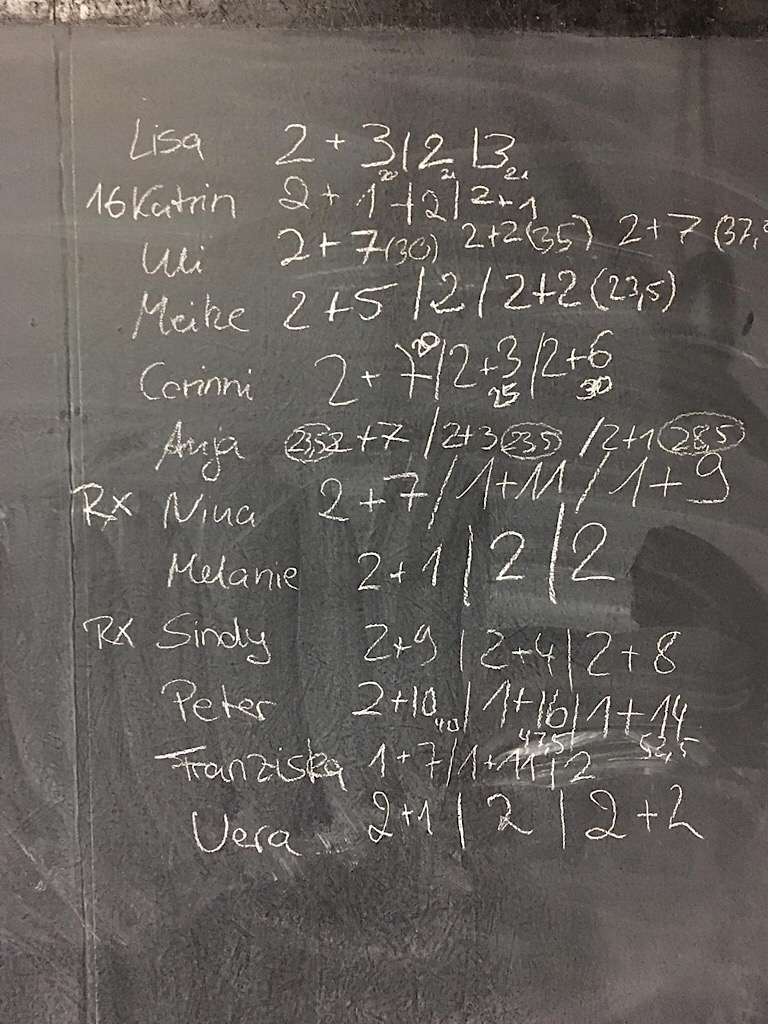 Lisa 2 + 3 | 2 | 3
20 21 21
16 Katrin 2 + 1 + |2| 2+1
Uli 2 + 7 (30) 2+2 (35) 2 + 7 (37,
Meike 2 +5 | 2 / 2+2 (23,5)
Corinni 2 + 7 20 / 2+3 25 / 2+6 30
Anja 23,5 2 +7 / 2+3 23,5 / 2+1 28,5
RX Nina 2 +7 / 1+11 / 1+9
Melanie 2+1 | 2 | 2
RX Sindy 2+9 | 2+4 | 2+8
Peter 2+10 40 | 1+16 47,5 | 1+14 52,5
Franziska 1+7 / 1+11 | 2
Vera 2+1 | 2 | 2+2